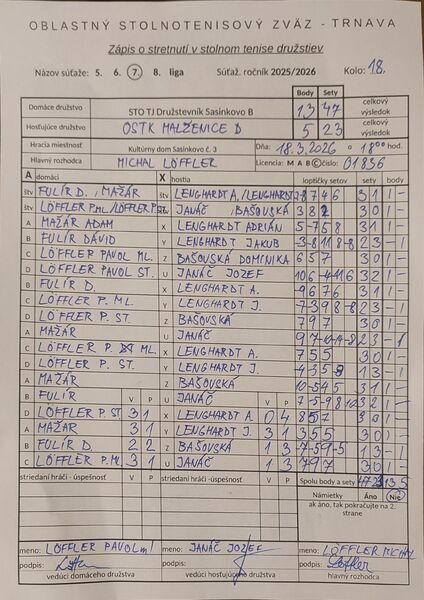 OBLASTNÝ STOLNOTENISOVÝ ZVÄZ - TRNAVA
Zápis o stretnutí v stolnom tenise družstiev
Názov súťaže: 5. 6. 7. 8. liga Súťaž. ročník 2025/2026 Kolo: 18.
Body Sety
Domáce družstvo STO TJ Družstevník Sasinkovo B 13 47 celkový výsledok
Hosťujúce družstvo OSTK MALŽENICE D 5 23 celkový výsledok
Hracia miestnosť Kultúrny dom Sasinkovo č. 3 Dňa: 18.3.2026 o 18 00 hod.
Hlavný rozhodca MICHAL LÖFFLER Licencia: M A B C číslo: 01836
A domáci X hostia loptičky setov sety body
štv FULÍR D., MAŽÁR štv LENGHARDT A./LENGHARDT J. 31 1-
štv LÖFFLER P.ML./LÖFFLER P.ST. štv JANÁČ BAŠOVSKÁ 30 1-
A MAŽÁR ADAM X LENGHARDT ADRIÁN 5-758 31 1-
B FULÍR DÁVID Y LENGHARDT JAKUB -3-8118-8 23 -1
C LÖFFLER PAVOL ML. Z BAŠOVSKÁ DOMINIKA 657 30 1-
D LÖFFLER PAVOL ST. U JANÁČ JOZEF 32 1-
B FULÍR D. X LENGHARDT A. -9676 31 1-
C LÖFFLER P. ML. Y LENGHARDT J. -7398-8 23 -1
D LÖFFLER P. ST. Z BAŠOVSKÁ 797 30 1-
A MAŽÁR U JANÁČ 23 -1
C LÖFFLER P. ML. X LENGHARDT A. 755 30 1-
D LÖFFLER P. ST. Y LENGHARDT J. 13 -1
A MAŽÁR Z BAŠOVSKÁ 10-545 31 1-
B FULÍR V P U JANÁČ V P 75-9810 32 1-
D LÖFFLER P. ST. 3 1 X LENGHARDT A. 0 4 857 30 1-
A MAŽÁR 3 1 Y LENGHARDT J. 3 1 355 30 1-
B FULÍR D. 2 2 Z BAŠOVSKÁ 1 3 -7-59-5 13 -1
C LÖFFLER P. ML. 3 1 U JANÁČ 1 3 797 30 1-
striedaní hráči - úspešnosť V P striedaní hráči - úspešnosť V P Spolu body a sety 47 23 13 5
Námietky Áno Nie
ak áno, tak pokračujte na 2. strane
meno: LÖFFLER PAVOL ml meno: JANÁČ JOZEF meno: LÖFFLER MICHAL
podpis: podpis: podpis: Löffler
vedúci domáceho družstva vedúci hosťujúceho družstva hlavný rozhodca